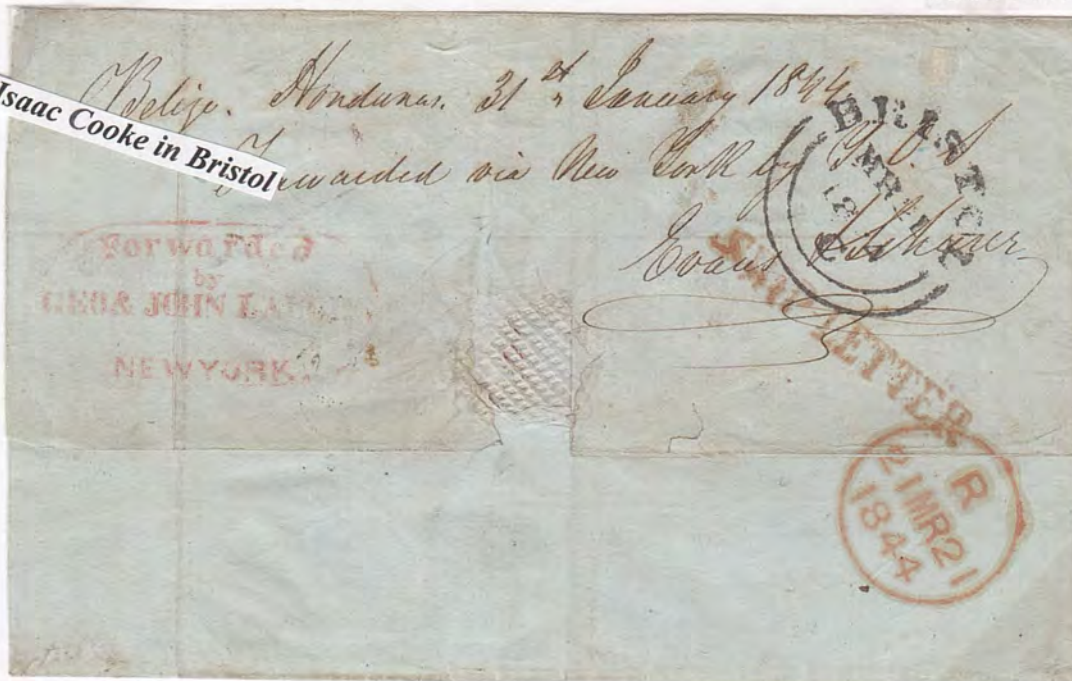 Isaac Cooke in Bristol
Belize. Honduras. 31st January 1844
Forwarded via New York by
Evans
BRISTOL
MR
SHIP LETTER
Forwarded
by
GEO & JOHN
NEW YORK.
R
21MR21
1844